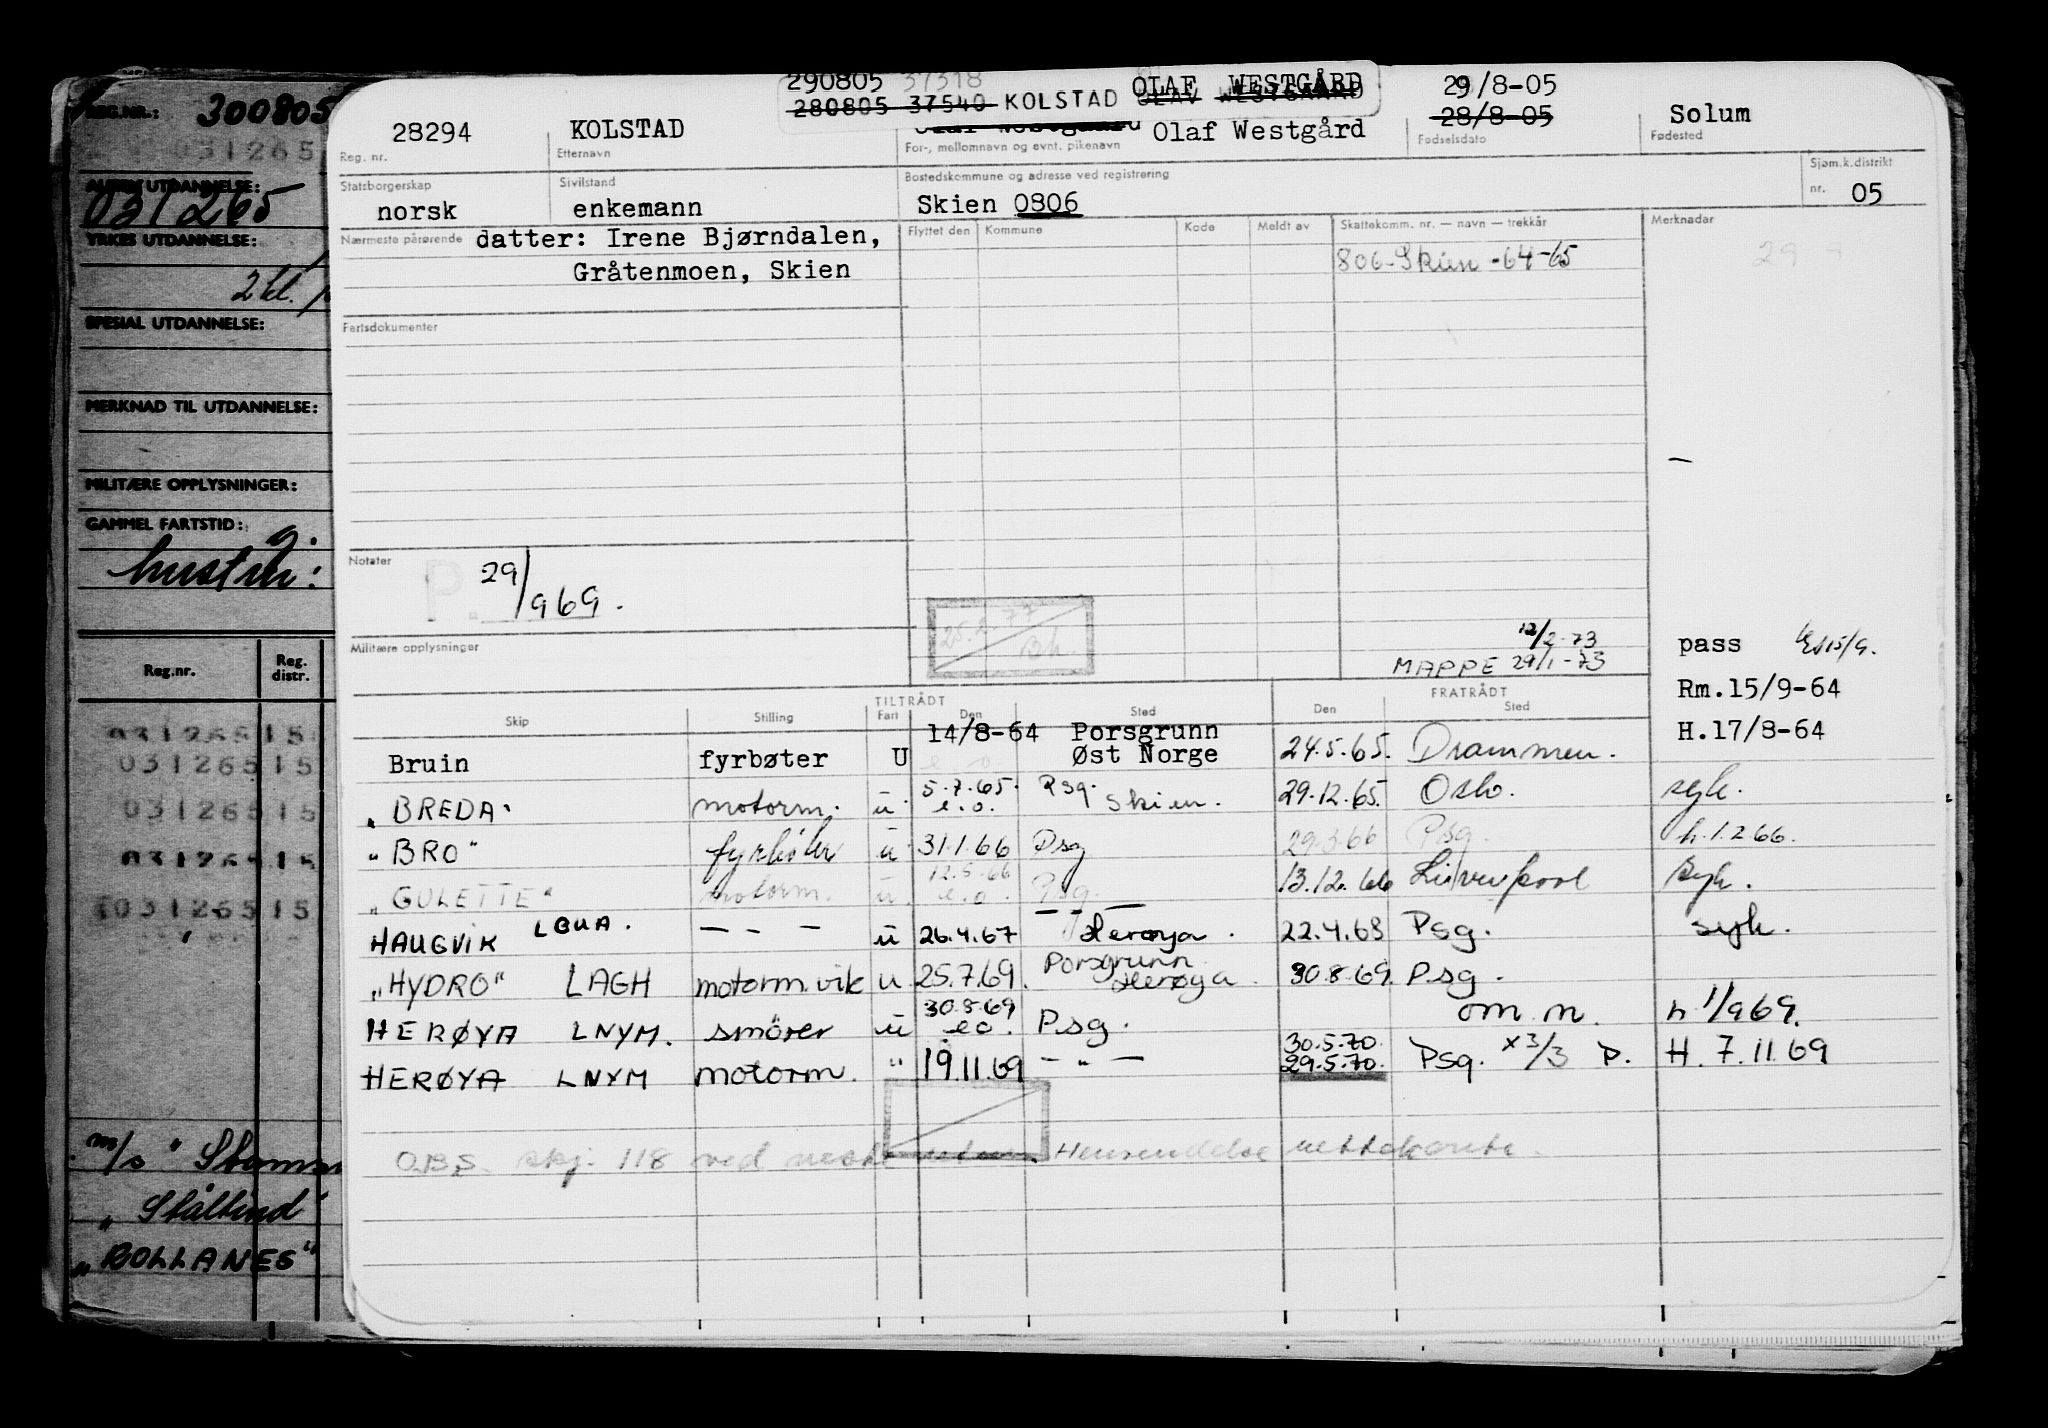 REG.NR.: 300805
031265
ALMEN UTDANNELSE:
031265
YRKES UTDANNELSE:
2 kl.
SPESIAL UTDANNELSE:
MERKNAD TIL UTDANNELSE:
MILITÆRE OPPLYSNINGER:
GAMMEL FARTSTID:
hustru:
Reg.nr. Reg. distr.
031265 15
031265 15
031265 15
031265 15
031265 15
m/s "
" Stålbind
"BOLLANES"
290805 37318 OLAF WESTGÅRD 29/8-05
280805 37540 KOLSTAD OLAV WESTGAARD 28/8-05 Solum
28294 KOLSTAD Olaf Westgaard Olaf Westgård
Reg. nr. Etternavn For-, mellomnavn og evnt. pikenavn Fødselsdato Fødested
Statsborgerskap Sivilstand Bostedskommune og adresse ved registrering Sjøm.k.distrikt
norsk enkemann Skien 0806 nr. 05
Nærmeste pårørende datter: Irene Bjørndalen, Flyttet den Kommune Kode Meldt av Skattekomm. nr. — navn — trekkår Merknader
Gråtenmoen, Skien 806-Skien -64-65
29
Fartsdokumenter
Notater P. 29/969.
25.2.77
Bh.
12/2-73
Militære opplysninger MAPPE 29/1-73
pass
Rm.15/9-64
H.17/8-64
TILTRÅDT FRATRÅDT
Skip Stilling Fart Den Sted Den Sted
14/8-64 Porsgrunn
Bruin fyrbøter U Øst Norge 24.5.65. Drammen.
5.7.65. Psg.
"BREDA" motorm. u e.o. Skien. 29.12.65. Oslo. syk.
"BRO" fyrbøter u 31.1.66 Psg 29.3.66 Psg. h.1.2.66.
12.5.66
"GULETTE" motorm. u. e.o. Psg. 13.12.66 Liverpool syk.
HAUGVIK LGUA. — - — u 26.4.67 Herøya. 22.4.68 Psg. syk.
"HYDRO" LAGH motorm.vik u 25.7.69. Porsgrunn Herøya. 30.8.69. Psg.
30.8.69
HERØYA LNYM. smörer u eo. Psg. om.m. h 1/969.
30.5.70.
HERØYA LNYM motorm. " 19.11.69 — " — 29.5.70. Psg. x3/3 P. H. 7.11.69
OBS. skj. 118 ved neste Henvendelse nettokorte.